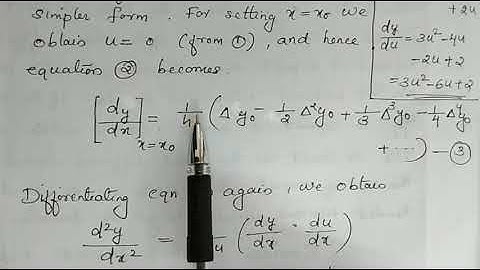 simpler form. For setting x = x₀ we
obtain u = 0 (from ①), and hence
equation ② becomes.
+ 2u
dy/du = 3u² - 4u
- 2u + 2
= 3u² - 6u + 2
[dy/dx] x=x₀ = 1/h (Δy₀ - 1/2 Δ²y₀ + 1/3 Δ³y₀ - 1/4 Δ⁴y₀
+ ---) — ③
Differentiating eqn again, we obtain
d²y/dx² = (dy/dx · du/dx)